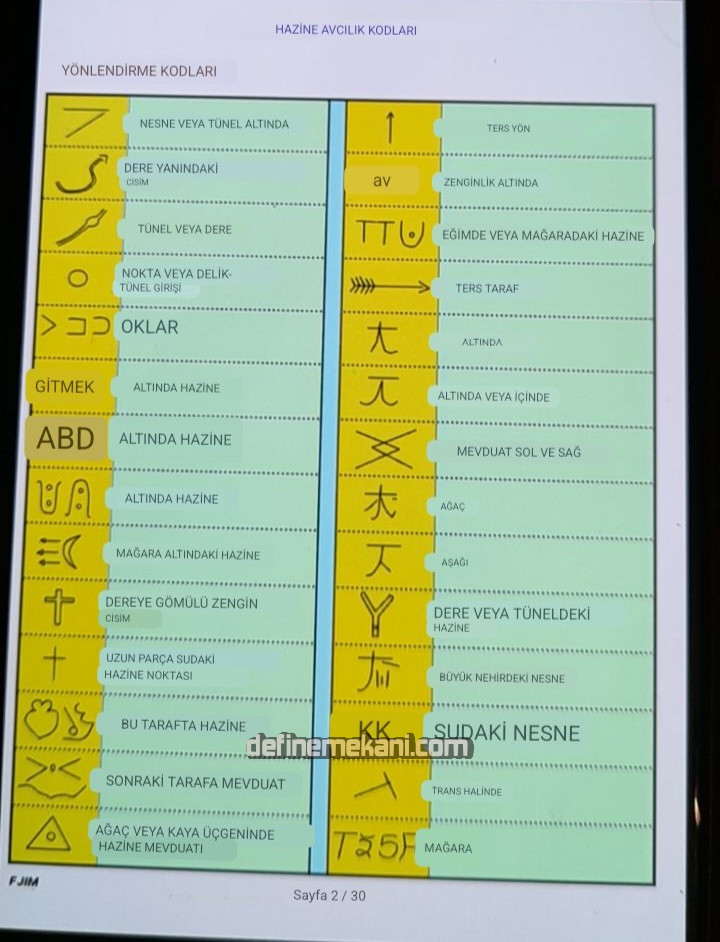 HAZİNE AVCILIK KODLARI
YÖNLENDİRME KODLARI
NESNE VEYA TÜNEL ALTINDA
DERE YANINDAKİ
CİSİM
TÜNEL VEYA DERE
NOKTA VEYA DELİK-
TÜNEL GİRİŞİ
OKLAR
GİTMEK
ALTINDA HAZİNE
ABD
ALTINDA HAZİNE
ALTINDA HAZİNE
MAĞARA ALTINDAKİ HAZİNE
DEREYE GÖMÜLÜ ZENGİN
CİSİM
UZUN PARÇA SUDAKİ
HAZİNE NOKTASI
BU TARAFTA HAZİNE
SONRAKİ TARAFA MEVDUAT
AĞAÇ VEYA KAYA ÜÇGENİNDE
HAZİNE MEVDUATI
TERS YÖN
av
ZENGİNLİK ALTINDA
EĞİMDE VEYA MAĞARADAKİ HAZİNE
TERS TARAF
ALTINDA
ALTINDA VEYA İÇİNDE
MEVDUAT SOL VE SAĞ
AĞAÇ
AŞAĞI
DERE VEYA TÜNELDEKİ
HAZİNE
BÜYÜK NEHİRDEKİ NESNE
KK
SUDAKİ NESNE
definemekani.com
TRANS HALİNDE
MAĞARA
FJIM
Sayfa 2 / 30